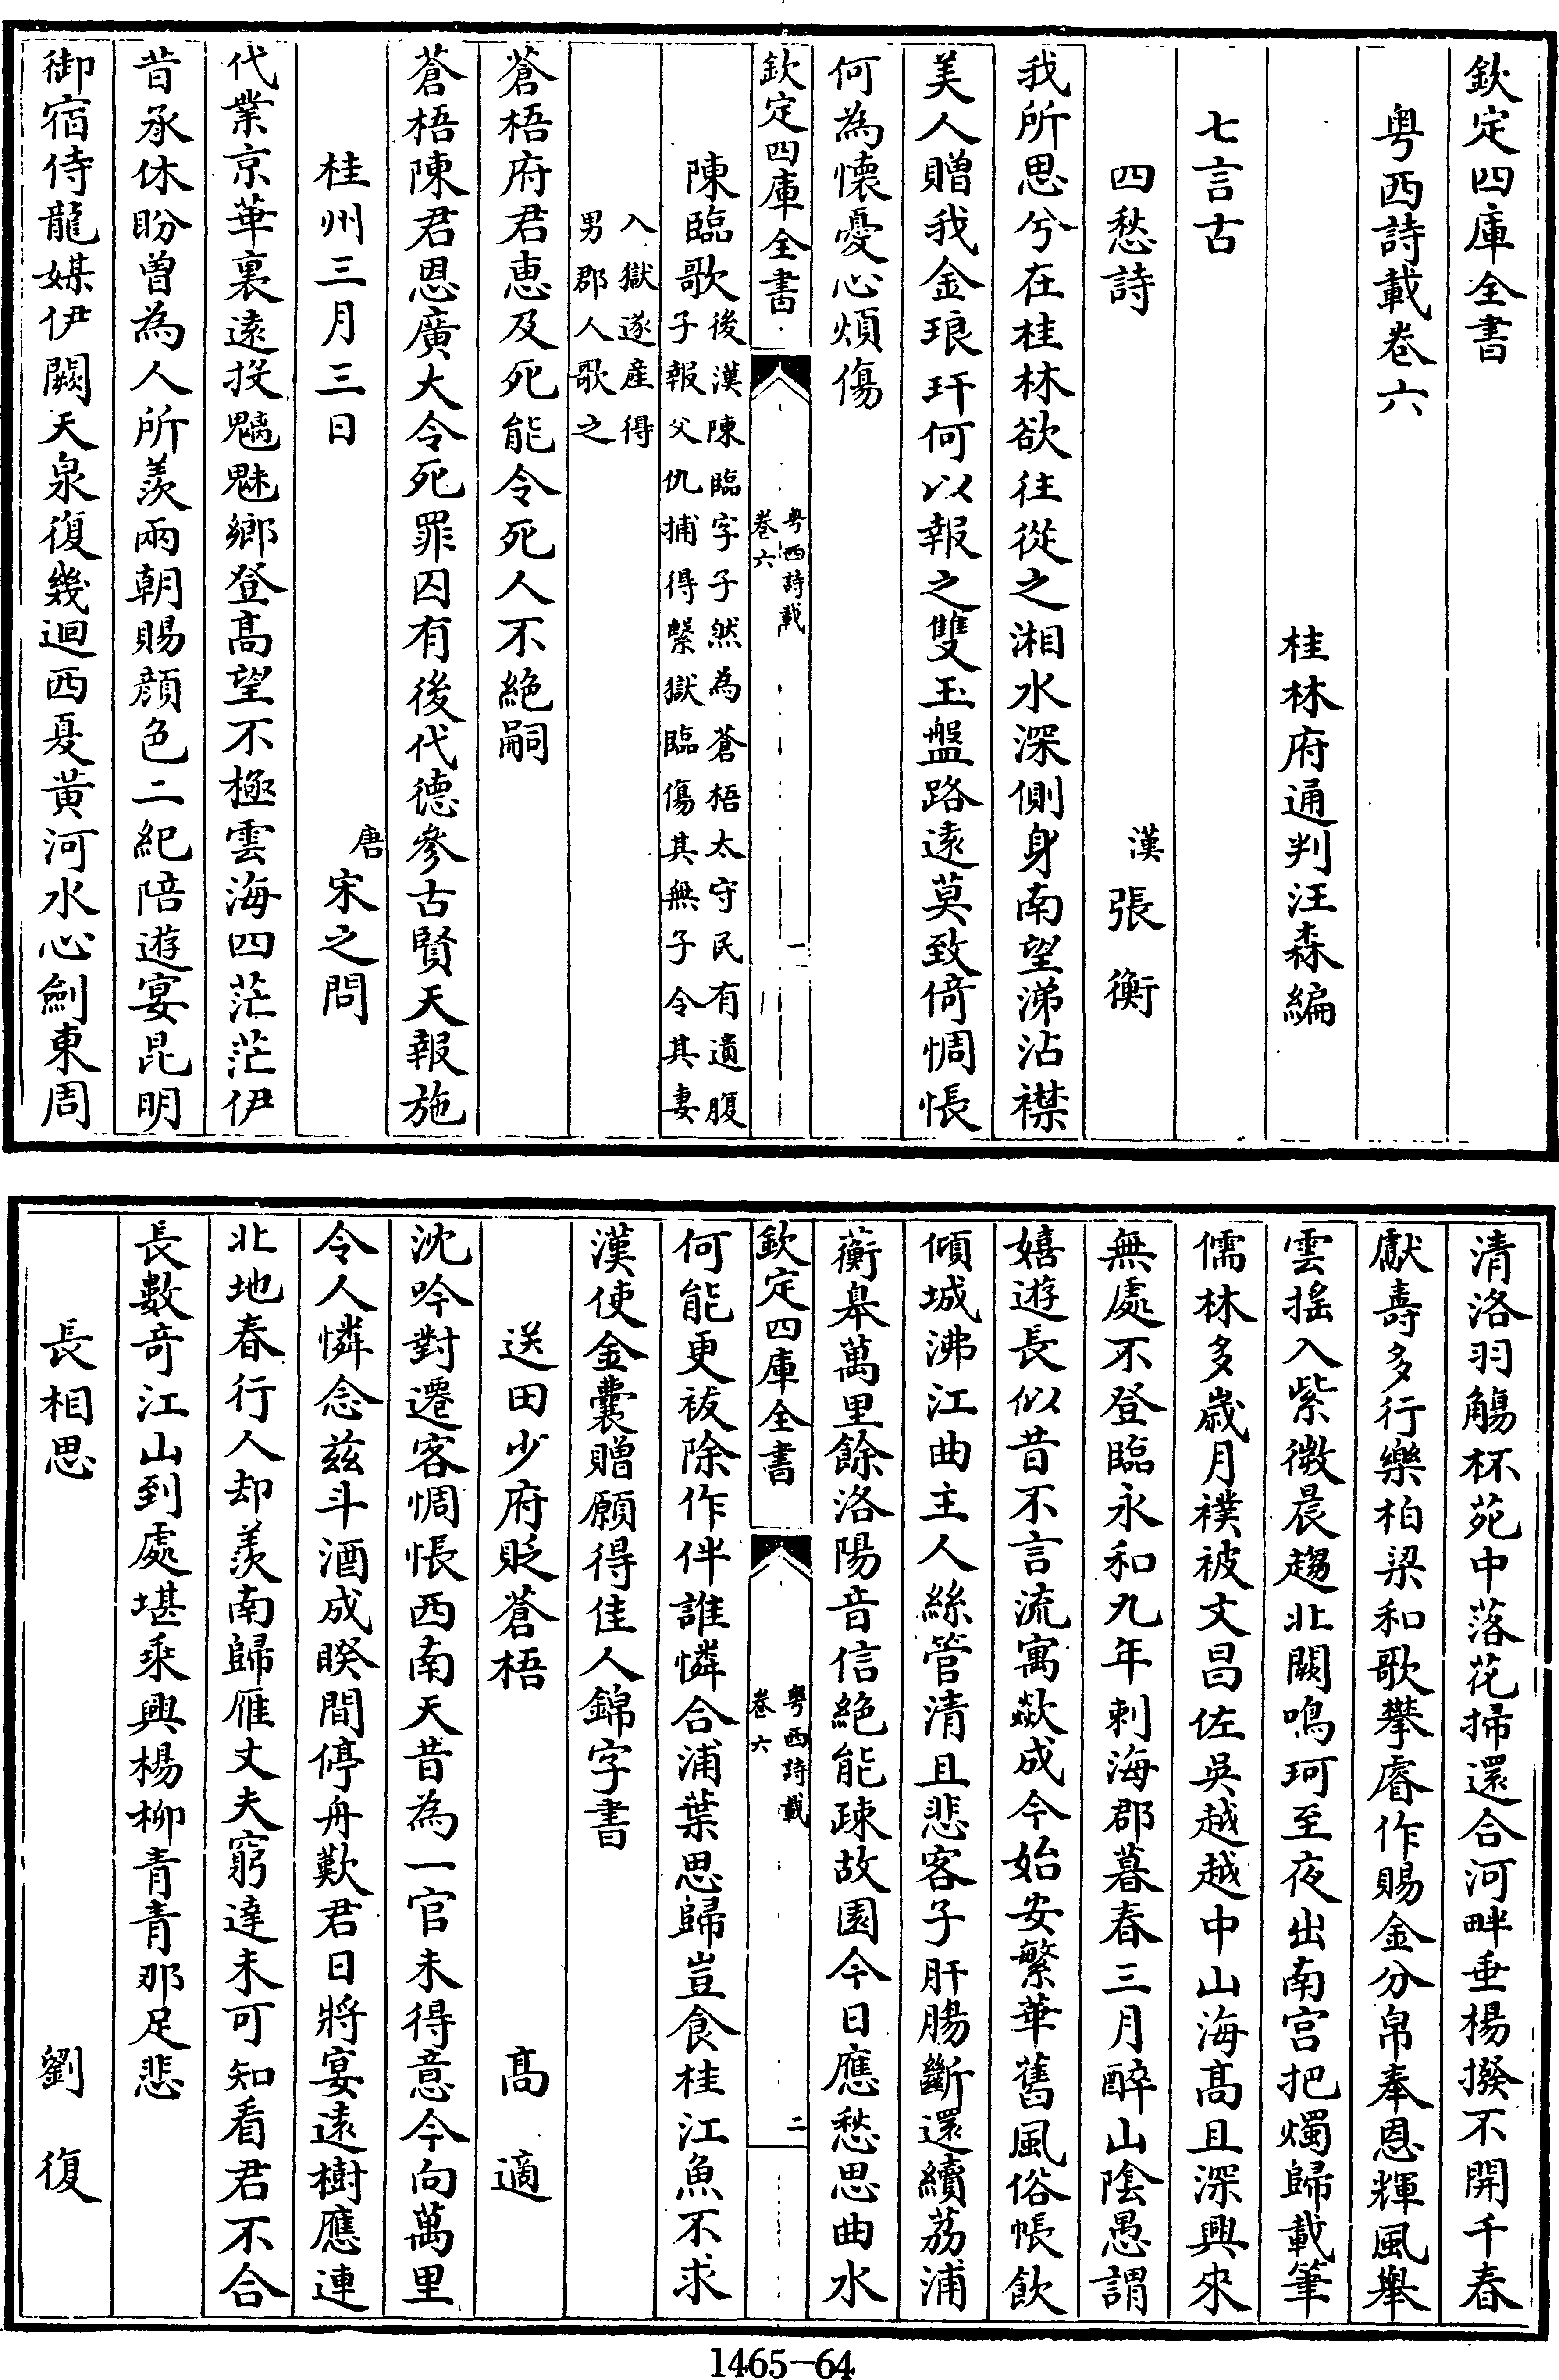 欽定四庫全書
粤西詩載卷六
桂林府通判汪森編
七言古
四愁詩　漢　張衡
我所思兮在桂林欲往從之湘水深側身南望涕沾襟
美人贈我金琅玕何以報之雙玉盤路逺莫致倚惆悵
何為懷憂心煩傷
欽定四庫全書
粤西詩載
卷六
一
陳臨歌
後漢陳臨字子然為蒼梧太守民有遺腹
子報父仇捕得繫獄臨傷其無子令其妻
入獄遂産得
男郡人歌之
蒼梧府君惠及死能令死人不絶嗣
蒼梧陳君恩廣大令死罪囚有後代德參古賢天報施
桂州三月三日　唐　宋之問
代業京華裏逺投魑魅鄉登髙望不極雲海四茫茫伊
昔承休盼曽為人所羨兩朝賜顔色二紀陪遊宴昆明
御宿侍龍媒伊闕天泉復幾迴西夏黄河水心劍東周
清洛羽觴杯苑中落花掃還合河畔垂楊撥不開千春
獻壽多行樂柏梁和歌攀睿作賜金分帛奉恩輝風舉
雲揺入紫微晨趨北闕鳴珂至夜出南宫把燭歸載筆
儒林多嵗月襆被文昌佐吳越越中山海髙且深興來
無處不登臨永和九年刺海郡暮春三月醉山隂愚謂
嬉遊長似昔不言流寓歘成今始安繁華舊風俗帳飲
傾城沸江曲主人絲管清且悲客子肝腸斷還續荔浦
蘅臯萬里餘洛陽音信絶能疎故園今日應愁思曲水
欽定四庫全書
粤西詩載
卷六
二
何能更祓除作伴誰憐合浦葉思歸豈食桂江魚不求
漢使金囊贈願得佳人錦字書
送田少府貶蒼梧　髙適
沈吟對遷客惆悵西南天昔為一官未得意今向萬里
令人憐念兹斗酒成睽間停舟歎君日將宴逺樹應連
北地春行人却羨南歸雁丈夫窮達未可知看君不合
長數竒江山到處堪乘興楊柳青青那足悲
長相思　劉復
1465-64